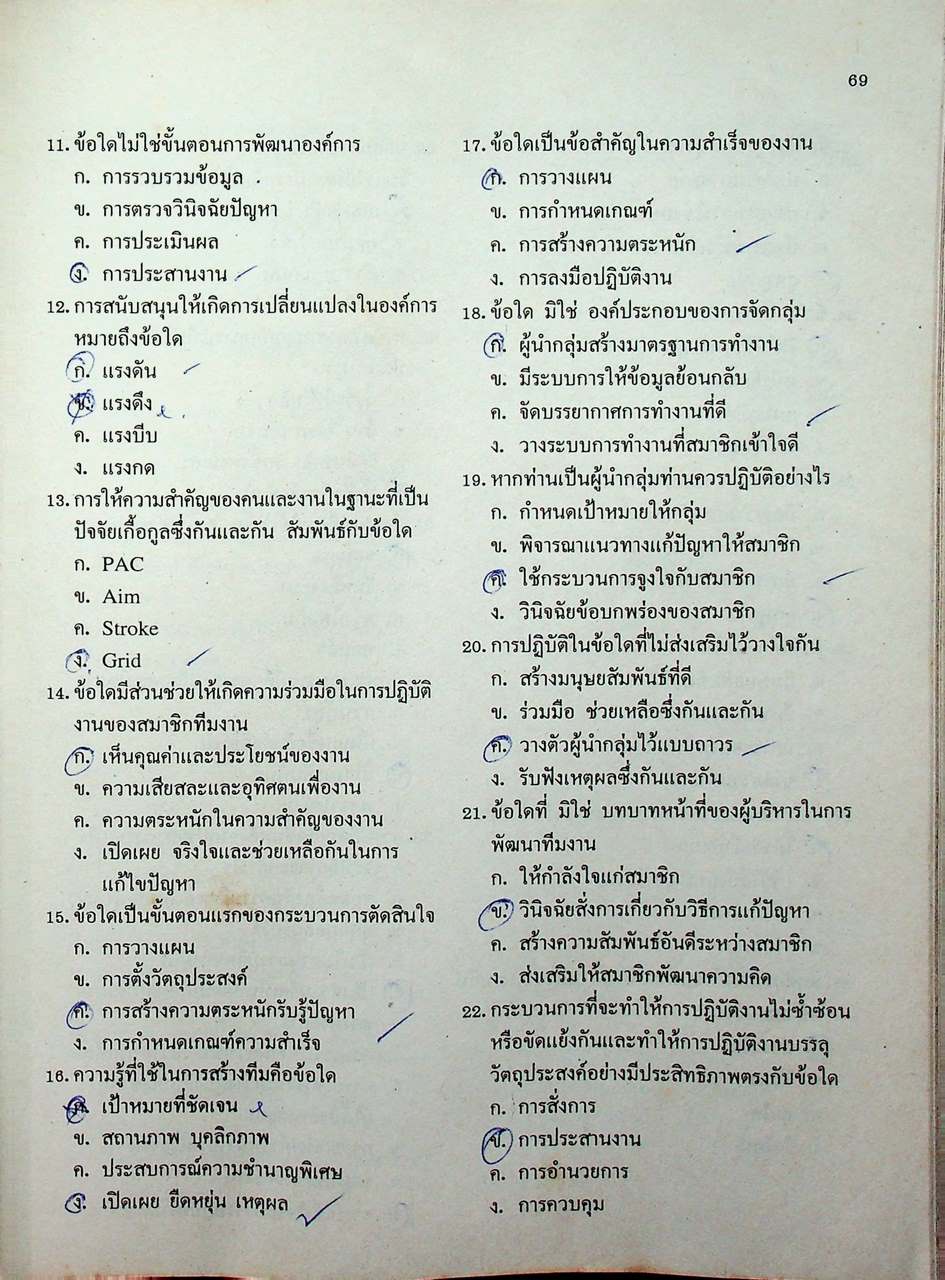 69
11. ข้อใดไม่ใช่ขั้นตอนการพัฒนาองค์การ
ก. การรวบรวมข้อมูล
ข. การตรวจวินิจฉัยปัญหา
ค. การประเมินผล
ง. การประสานงาน
12. การสนับสนุนให้เกิดการเปลี่ยนแปลงในองค์การ
หมายถึงข้อใด
ก. แรงดัน
ข. แรงดึง
ค. แรงบีบ
ง. แรงกด
13. การให้ความสำคัญของคนและงานในฐานะที่เป็น
ปัจจัยเกื้อกูลซึ่งกันและกัน สัมพันธ์กับข้อใด
ก. PAC
ข. Aim
ค. Stroke
ง. Grid
14. ข้อใดมีส่วนช่วยให้เกิดความร่วมมือในการปฏิบัติ
งานของสมาชิกทีมงาน
ก. เห็นคุณค่าและประโยชน์ของงาน
ข. ความเสียสละและอุทิศตนเพื่องาน
ค. ความตระหนักในความสำคัญของงาน
ง. เปิดเผย จริงใจและช่วยเหลือกันในการ
แก้ไขปัญหา
15. ข้อใดเป็นขั้นตอนแรกของกระบวนการตัดสินใจ
ก. การวางแผน
ข. การตั้งวัตถุประสงค์
ค. การสร้างความตระหนักรับรู้ปัญหา
ง. การกำหนดเกณฑ์ความสำเร็จ
16. ความรู้ที่ใช้ในการสร้างทีมคือข้อใด
ก. เป้าหมายที่ชัดเจน
ข. สถานภาพ บุคลิกภาพ
ค. ประสบการณ์ความชำนาญพิเศษ
ง. เปิดเผย ยืดหยุ่น เหตุผล
17. ข้อใดเป็นข้อสำคัญในความสำเร็จของงาน
ก. การวางแผน
ข. การกำหนดเกณฑ์
ค. การสร้างความตระหนัก
ง. การลงมือปฏิบัติงาน
18. ข้อใด มิใช่ องค์ประกอบของการจัดกลุ่ม
ก. ผู้นำกลุ่มสร้างมาตรฐานการทำงาน
ข. มีระบบการให้ข้อมูลย้อนกลับ
ค. จัดบรรยากาศการทำงานที่ดี
ง. วางระบบการทำงานที่สมาชิกเข้าใจดี
19. หากท่านเป็นผู้นำกลุ่มท่านควรปฏิบัติอย่างไร
ก. กำหนดเป้าหมายให้กลุ่ม
ข. พิจารณาแนวทางแก้ปัญหาให้สมาชิก
ค. ใช้กระบวนการจูงใจกับสมาชิก
ง. วินิจฉัยข้อบกพร่องของสมาชิก
20. การปฏิบัติในข้อใดที่ไม่ส่งเสริมไว้วางใจกัน
ก. สร้างมนุษยสัมพันธ์ที่ดี
ข. ร่วมมือ ช่วยเหลือซึ่งกันและกัน
ค. วางตัวผู้นำกลุ่มไว้แบบถาวร
ง. รับฟังเหตุผลซึ่งกันและกัน
21. ข้อใดที่ มิใช่ บทบาทหน้าที่ของผู้บริหารในการ
พัฒนาทีมงาน
ก. ให้กำลังใจแก่สมาชิก
ข. วินิจฉัยสั่งการเกี่ยวกับวิธีการแก้ปัญหา
ค. สร้างความสัมพันธ์อันดีระหว่างสมาชิก
ง. ส่งเสริมให้สมาชิกพัฒนาความคิด
22. กระบวนการที่จะทำให้การปฏิบัติงานไม่ซ้ำซ้อน
หรือขัดแย้งกันและทำให้การปฏิบัติงานบรรลุ
วัตถุประสงค์อย่างมีประสิทธิภาพตรงกับข้อใด
ก. การสั่งการ
ข. การประสานงาน
ค. การอำนวยการ
ง. การควบคุม